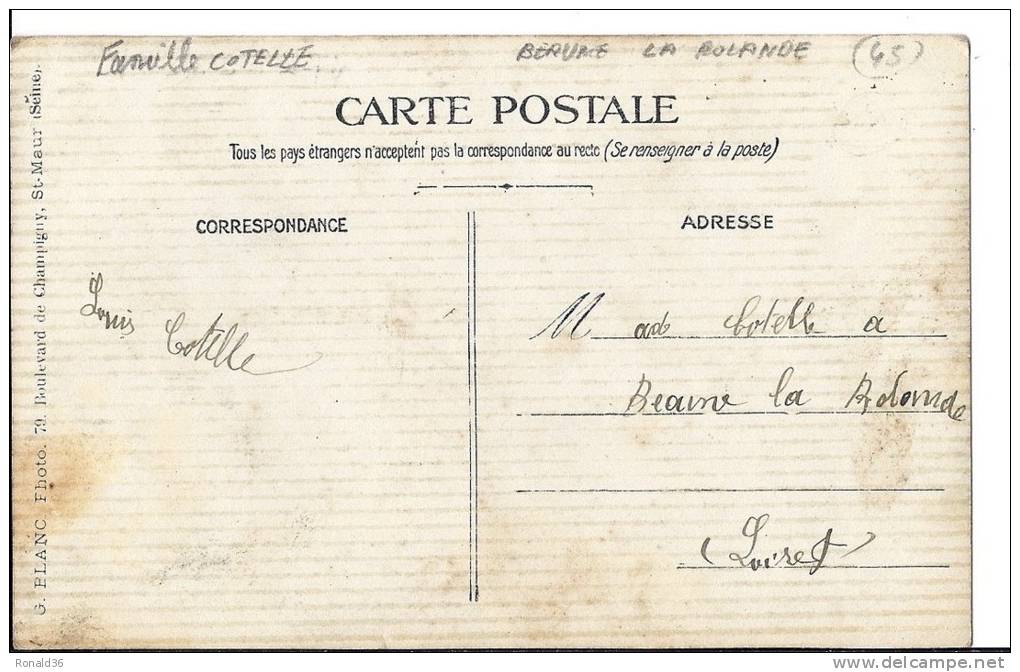 Famille COTELLE
BEAUNE LA ROLANDE (45)
CARTE POSTALE
Tous les pays étrangers n'acceptent pas la correspondance au recto (Se renseigner à la poste)
CORRESPONDANCE
ADRESSE
Louis Cotelle
M ade Cotelle a
Beaune la Rolande
(Loiret)
G. BLANC Photo. 79, Boulevard de Champigny, St-Maur (Seine).
Ronald36
www.delcampe.net